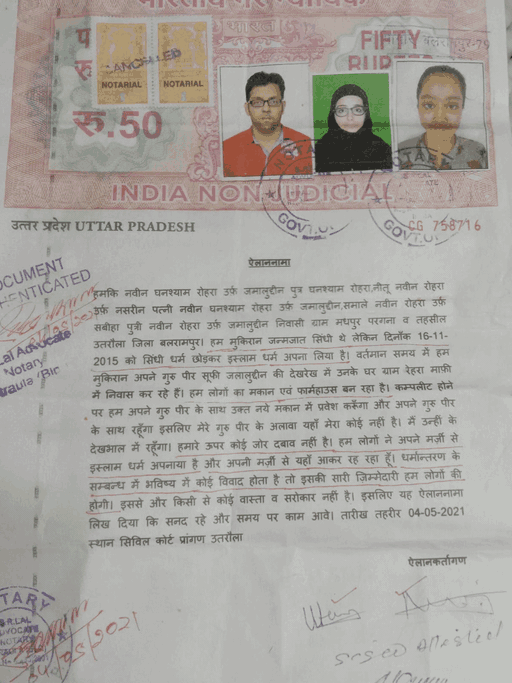 भारतीय गैर न्यायिक
भारत
FIFTY
रु.50
CANCELLED
NOTARIAL NOTARIAL
INDIA NON JUDICIAL
GOVT.U.
GOVT.U.
CG 758716
उत्तर प्रदेश UTTAR PRADESH
ऐलाननामा
हमकि नवीन घनश्याम रोहरा उर्फ जमालुद्दीन पुत्र घनश्याम रोहरा,नीतू नवीन रोहरा
उर्फ नसरीन पत्नी नवीन घनश्याम रोहरा उर्फ जमालुद्दीन,समाले नवीन रोहरा उर्फ
सबीहा पुत्री नवीन रोहरा उर्फ जमालुद्दीन निवासी ग्राम मधपुर परगना व तहसील
उतरौला जिला बलरामपुर। हम मुकिरान जन्मजात सिंधी थे लेकिन दिनॉक 16-11-
2015 को सिंधी धर्म छोड़कर इस्लाम धर्म अपना लिया है। वर्तमान समय में हम
मुकिरान अपने गुरु पीर सूफी जलालुद्दीन की देखरेख में उनके घर ग्राम रेहरा माफी
में निवास कर रहे हैं। हम लोगों का मकान एवं फार्महाउस बन रहा है। कम्पलीट होने
पर हम अपने गुरु पीर के साथ उक्त नये मकान में प्रवेश करूँगा और अपने गुरु पीर
के साथ रहूँगा इसलिए मेरे गुरु पीर के अलावा यहाँ मेरा कोई नहीं है। मैं उन्हीं के
देखभाल में रहूँगा। हमारे ऊपर कोई जोर दबाव नहीं है। हम लोगों ने अपने मर्ज़ी से
इस्लाम धर्म अपनाया है और अपनी मर्ज़ी से यहाँ आकर रह रहा हूँ। धर्मान्तरण के
सम्बन्ध में भविष्य में कोई विवाद होता है तो इसकी सारी जिम्मेदारी हम लोगों की
होगी। इससे और किसी से कोई वास्ता व सरोकार नहीं है। इसलिए यह ऐलाननामा
लिख दिया कि सनद रहे और समय पर काम आवे। तारीख तहरीर 04-05-2021
स्थान सिविल कोर्ट प्रांगण उतरौला
ऐलानकर्तागण
OCUMENT
ENTICATED
Lal Advocate
Notary
raula
TARY
R.LAL
DVOCATE
NOTARY